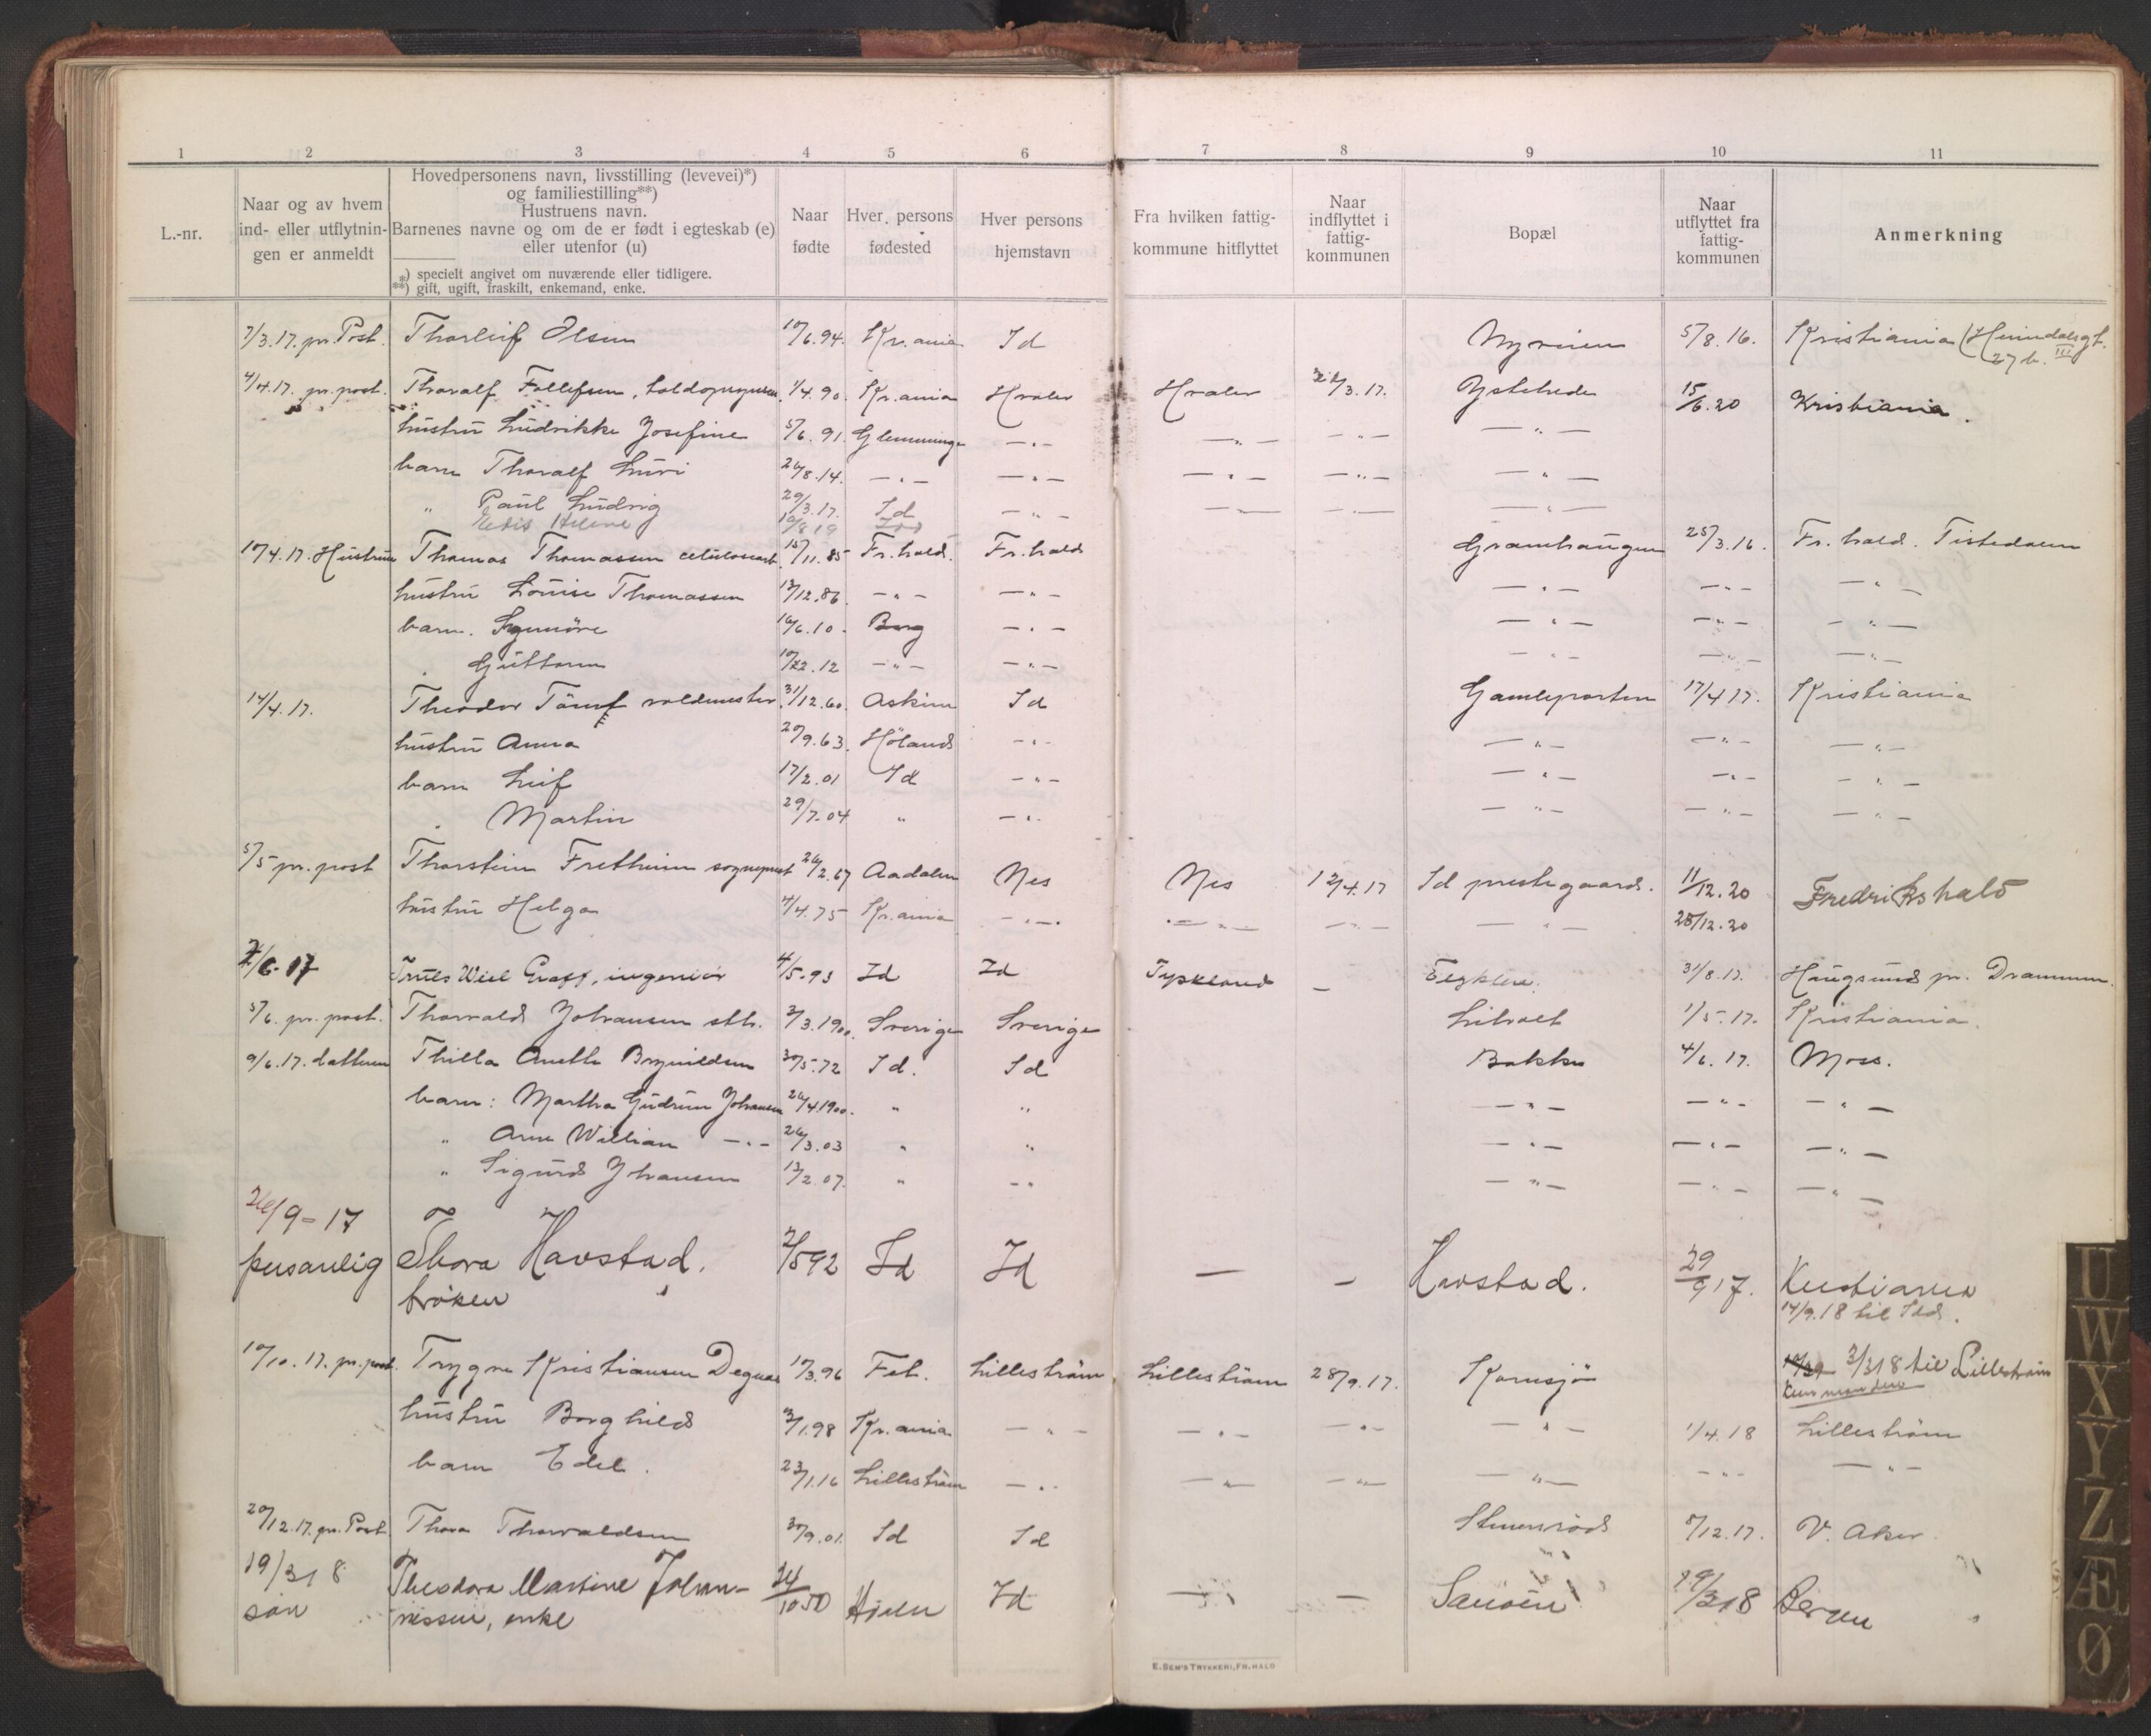 1 2 3 4 5 6 7 8 9 10 11
L.-nr.
Naar og av hvem
ind- eller utflytnin-
gen er anmeldt
Hovedpersonens navn, livsstilling (levevei)*)
og familiestilling**)
Hustruens navn.
Barnenes navne og om de er født i egteskab (e)
eller utenfor (u)
*) specielt angivet om nuværende eller tidligere.
**) gift, ugift, fraskilt, enkemand, enke.
Naar
fødte
Hver persons
fødested
Hver persons
hjemstavn
Fra hvilken fattig-
kommune hitflyttet
Naar
indflyttet i
fattig-
kommunen
Bopæl
Naar
utflyttet fra
fattig-
kommunen
Anmerkning
7/3.17. pr. Post. Thorleif Olsen 10/6.94. Kr.ania Id 5/8.16. Kristiania
27 b. III
4/4.17. pr. post. Thoralf 1/4.90. Kr.ania Hvaler Hvaler /3.17. Ystehede 15/6.20 Kristiania.
hustru Ludvikke Josefine 5/6.91. Glemminge —„— —„— —„— —„—
barn Thoralf 26/8.14. —„— —„— —„— —„— —„—
„ Paul Ludvig 29/3.17. Id —„— —„— —„— —„—
Helene 19
10/4.17. Hustruen Thomas Thomassen 15/11.85 Fr.hald. Fr.hald 25/3.16. Fr.hald. Tistedalen
hustru Louise Thomassen 13/12.86. —„— —„— —„— —„— —„—
barn. Synnöve 16/6.10. Borg —„— —„— —„— —„—
„ Guttorm 12 —„— —„— —„— —„— —„—
14/4.17. Theodor valdmester 31/12.60. Askim Id 17/4 17. Kristiania
hustru Anna 20/9.63. Höland —„— —„— —„— —„—
barn Leif 17/2.01 Id —„— —„— —„— —„—
„ Martin 29/7.04 „ —„— —„— —„— —„—
5/5 pr. post Thorstein Fretheim sogneprest 26/2.67 Aadalen Nes Nes 12/4.17 Id prestegaard. 11/12.20 Fredrikshald
hustru Helga 4/4.75 Kr.ania —„— —„— —„— —„— 28/12.20
/6.17 Truls Wiel Graff, ingeniör 4/5-93 Id Id Tyskland — 31/8.17. Haugsund pr. Drammen.
5/6. pr. post. Thorvald Johansen 3/3.1900. Sverige Sverige 1/5.17. Kristiania.
9/6.17. datteren Thilla Brynildsen 30/5.72 Id. Id Bakke 4/6.17. Moss.
barn: Martha Gudrun Johansen 26/4.1900. „ „ —„— —„— —„—
„ Arne William —„— 26/3.03 „ „ —„— —„— —„—
„ Sigurd Johansen 13/2.07. „ —„— —„— —„— —„—
26/9-17
personlig Thora Havstad. 2/5 92 Id Id — — Havstad. 29/9 17. Kristiania
fröken 14/9.18 til Idd.
10/10.17. pr. post. Trygve Kristiansen 10/3.96 Fet. Lilleström Lilleström 28/9.17. Kornsjö 3/3 18 til Lilleström
hustru Borghild 3/1.98 Kr.ania —„— —„— —„— —„— 1/4.18 Lilleström
barn Edel. 23/1.16 Lilleström —„— —„— —„— —„— —„— —„—
20/12.17. pr. Post. Thora Thorvaldsen 30/9.01. Id Id Stumröd /12.17. V. Aker.
19/3 18 Theodora Martine Johan- 24/10 50 Id — — 29/3 18 Bergen
sön nessen, enke
E. SEM'S TRYKKERI, FR.HALD
U
W
X
Y
Z
Æ
Ø